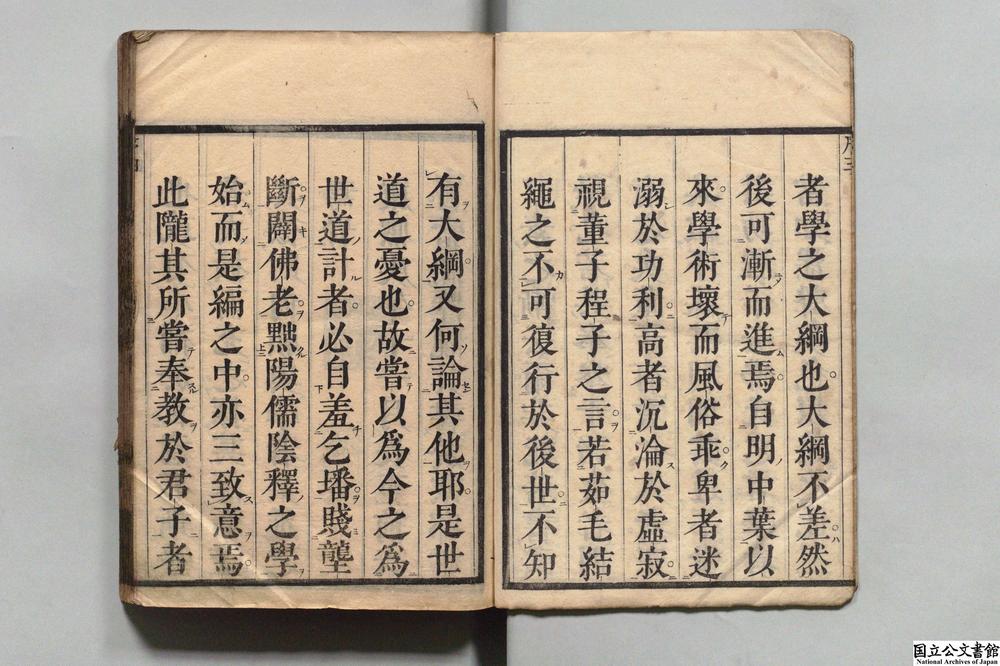 者學之大綱也大綱不差然
後可漸而進焉自明中葉以
來學術壞而風俗乖卑者迷
溺於功利高者沉淪於虛寂
視董子程子之言若茹毛結
繩之不可復行於後世不知
有大綱又何論其他耶是世
道之憂也故嘗以爲今之爲
世道計者必自羞乞墦賤壟
斷闢佛老黜陽儒陰釋之學
始而是編之中亦三致意焉
此隴其所嘗奉教於君子者
序三
国立公文書館
National Archives of Japan